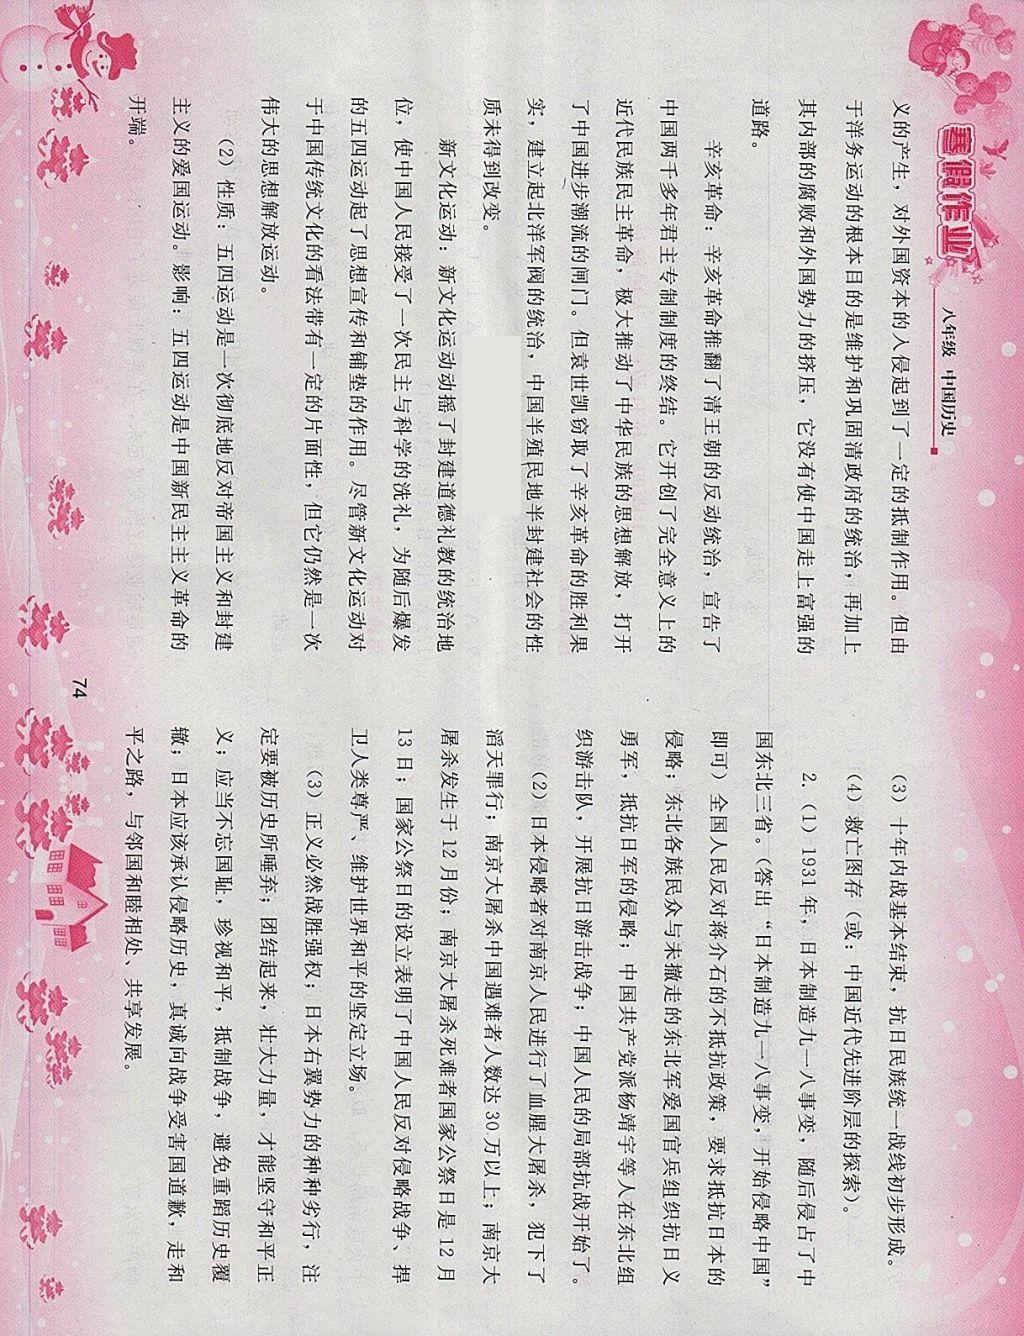 寒假作业
八年级 中国历史
义的产生，对外国资本的入侵起到了一定的抵制作用。但由
于洋务运动的根本目的是维护和巩固清政府的统治，再加上
其内部的腐败和外国势力的挤压，它没有使中国走上富强的
道路。
辛亥革命：辛亥革命推翻了清王朝的反动统治，宣告了
中国两千多年君主专制制度的终结。它开创了完全意义上的
近代民族民主革命，极大推动了中华民族的思想解放，打开
了中国进步潮流的闸门。但袁世凯窃取了辛亥革命的胜利果
实，建立起北洋军阀的统治，中国半殖民地半封建社会的性
质未得到改变。
新文化运动：新文化运动动摇了封建道德礼教的统治地
位，使中国人民接受了一次民主与科学的洗礼，为随后爆发
的五四运动起了思想宣传和铺垫的作用。尽管新文化运动对
于中国传统文化的看法带有一定的片面性，但它仍然是一次
伟大的思想解放运动。
（2）性质：五四运动是一次彻底地反对帝国主义和封建
主义的爱国运动。影响：五四运动是中国新民主主义革命的
开端。
（3）十年内战基本结束，抗日民族统一战线初步形成。
（4）救亡图存（或：中国近代先进阶层的探索）。
2.（1）1931年，日本制造九一八事变，随后侵占了中
国东北三省。（答出“日本制造九一八事变，开始侵略中国”
即可）全国人民反对蒋介石的不抵抗政策，要求抵抗日本的
侵略；东北各族民众与未撤走的东北军爱国官兵组织抗日义
勇军，抵抗日军的侵略；中国共产党派杨靖宇等人在东北组
织游击队，开展抗日游击战争；中国人民的局部抗战开始了。
（2）日本侵略者对南京人民进行了血腥大屠杀，犯下了
滔天罪行；南京大屠杀中国遇难者人数达30万以上；南京大
屠杀发生于12月份；南京大屠杀死难者国家公祭日是12月
13日；国家公祭日的设立表明了中国人民反对侵略战争、捍
卫人类尊严、维护世界和平的坚定立场。
（3）正义必然战胜强权；日本右翼势力的种种劣行，注
定要被历史所唾弃；团结起来，壮大力量，才能坚守和平正
义；应当不忘国耻，珍视和平，抵制战争，避免重蹈历史覆
辙；日本应该承认侵略历史，真诚向战争受害国道歉，走和
平之路，与邻国和睦相处、共享发展。
74